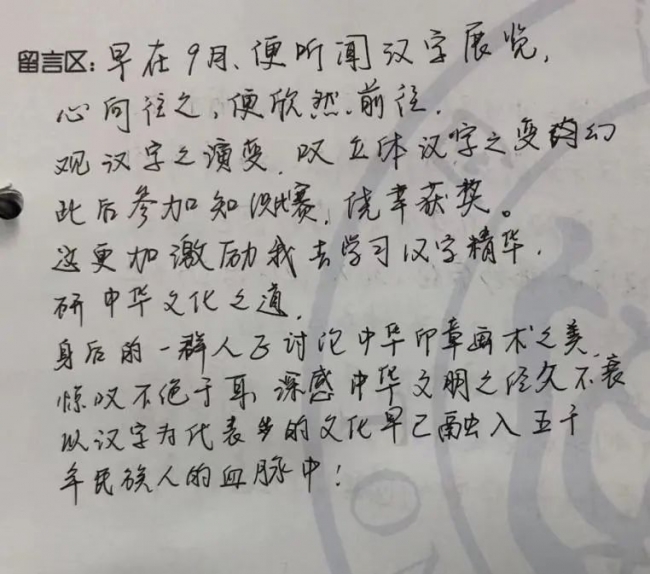 留言区：早在9月、便听闻汉字展览，
心向往之，便欣然前往．
观汉字之演变，叹立体汉字之变幻
此后参加知识比赛，侥幸获奖。
这更加激励我去学习汉字精华．
研中华文化之道，
身后的一群人正讨论中华印章画术之美，
惊叹不绝于耳，深感中华文明之经久不衰
以汉字为代表的文化早已融入五千
年民族人的血脉中！